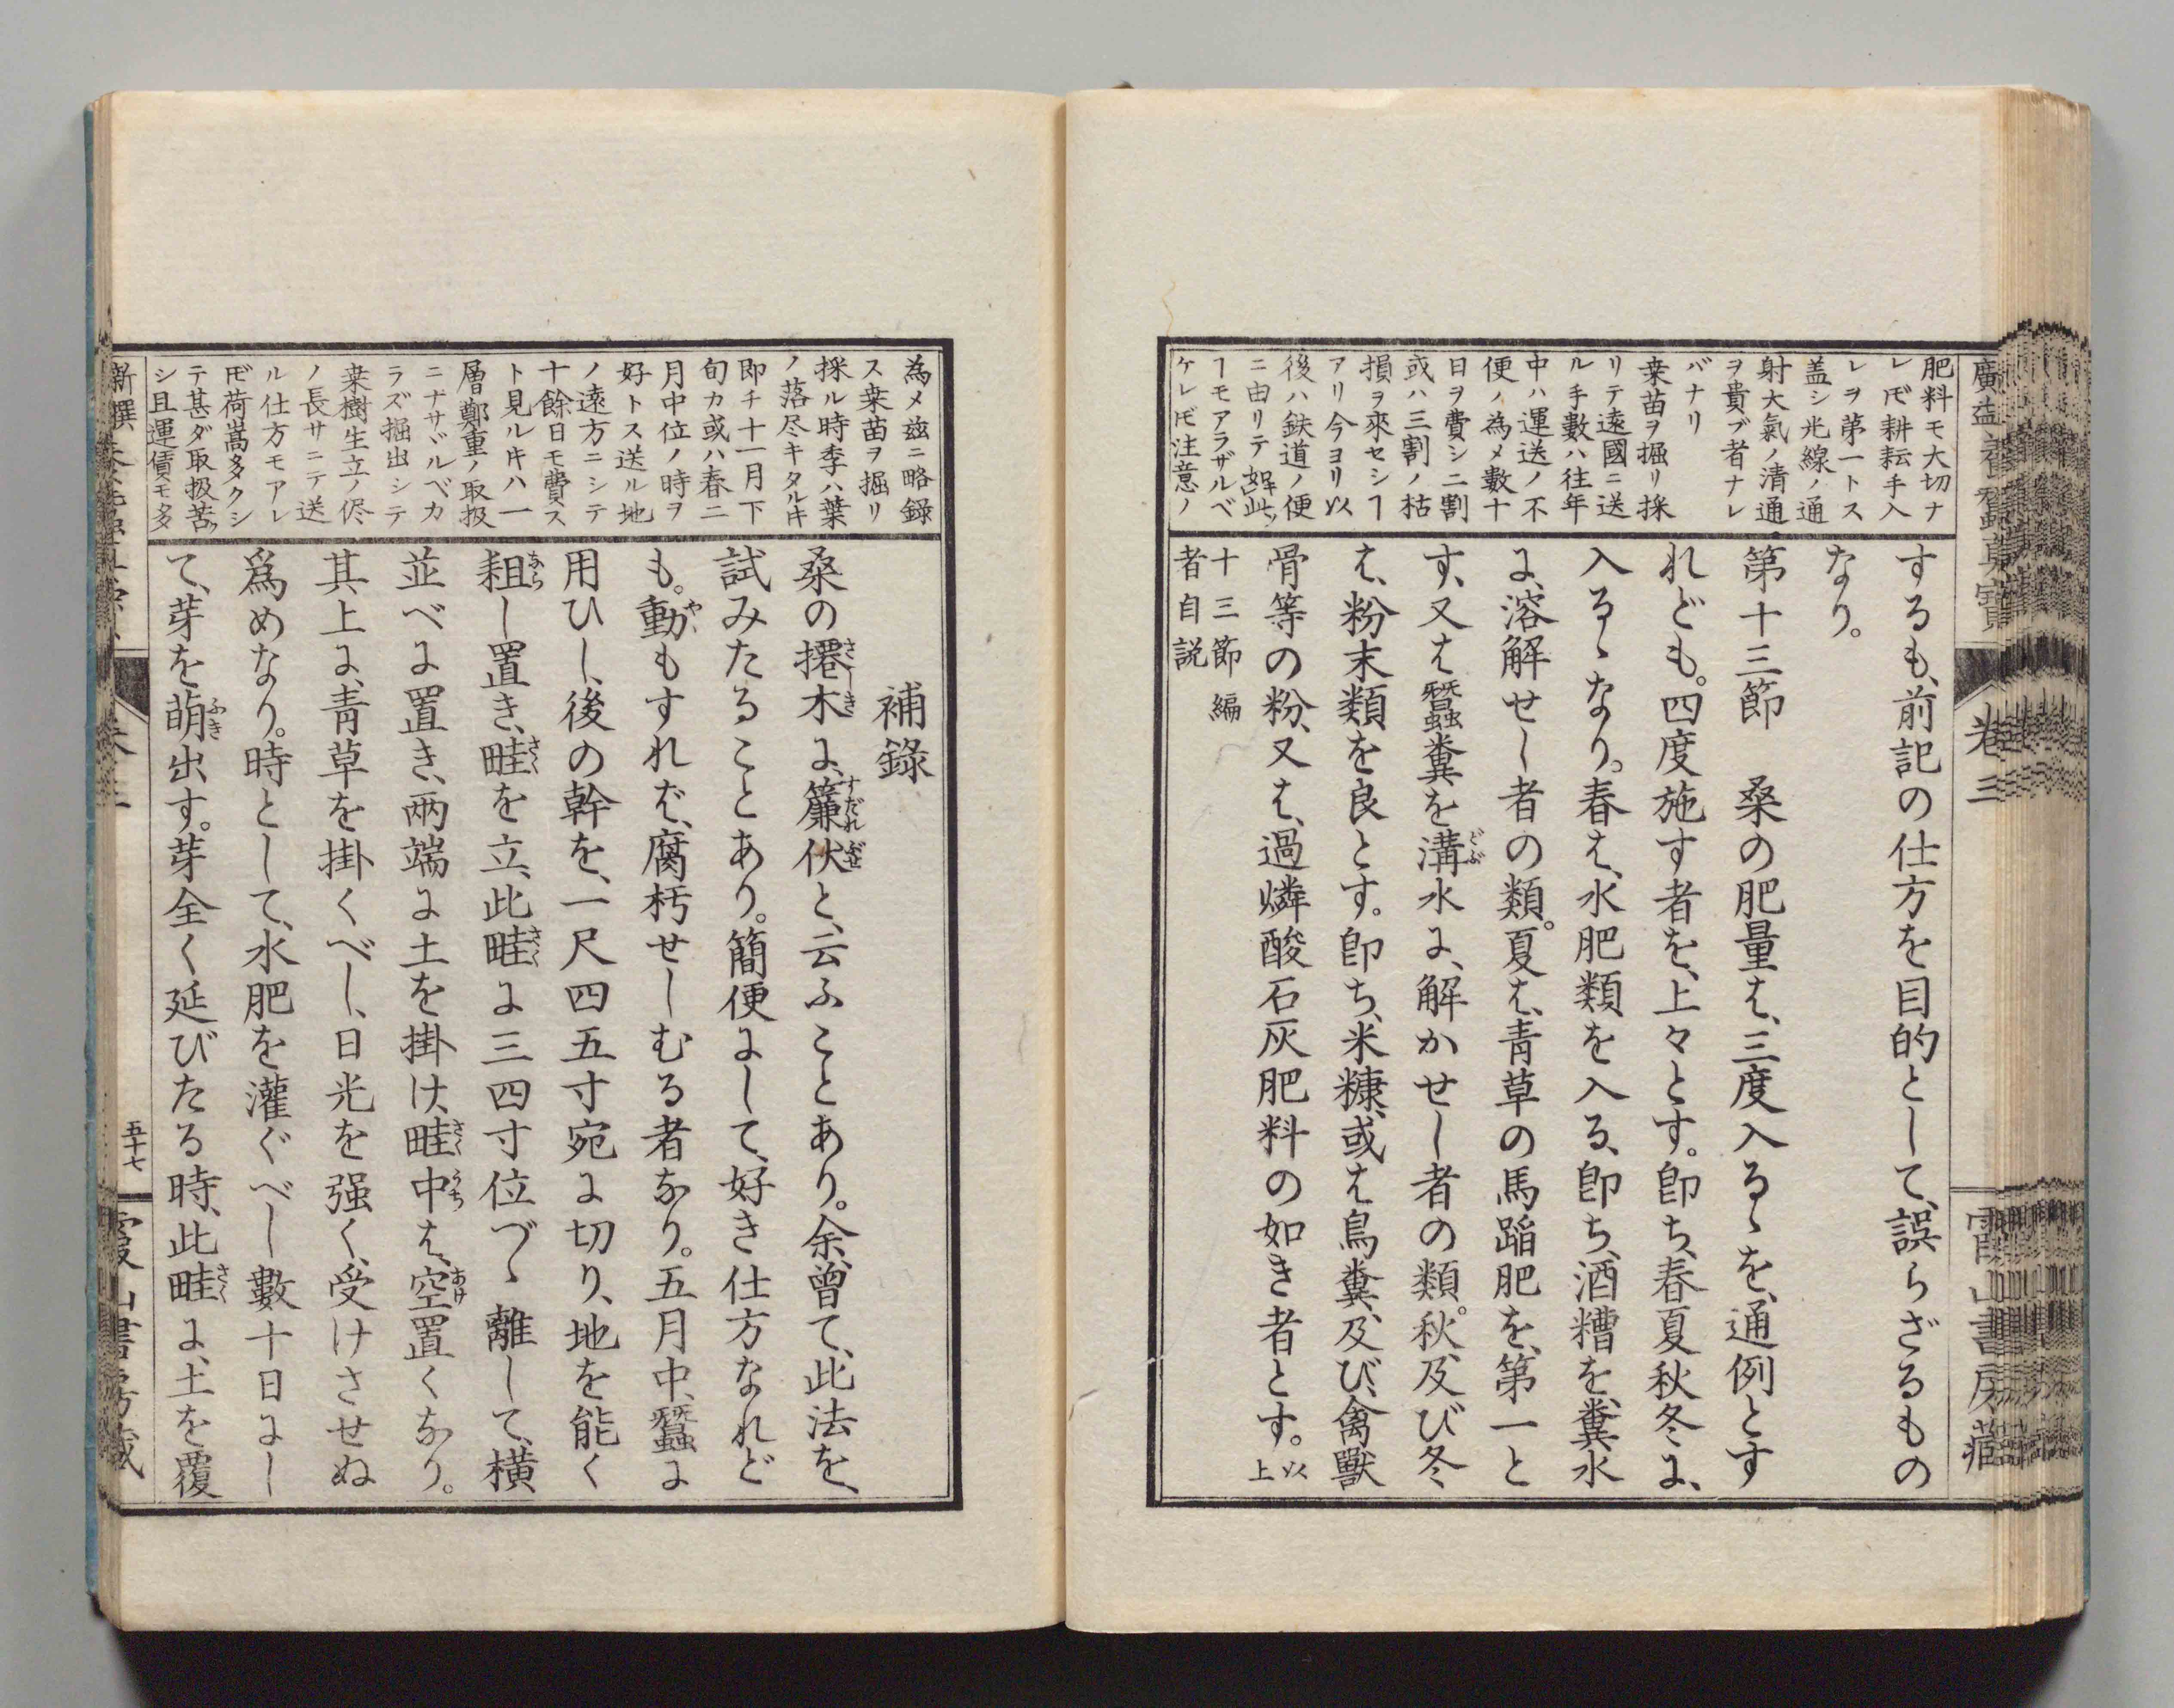 肥料モ大切ナ
レ𪜈耕耘手入
レヲ第一トス
盖シ光線ノ通
射大氣ノ清通
ヲ貴ブ者ナレ
バナリ
桒苗ヲ掘リ採
リテ遠國ニ送
ル手數ハ往年
中ハ運送ノ不
便ノ為メ數十
日ヲ費シ二割
或ハ三割ノ枯
損ヲ來セシヿ
アリ今ヨリ以
後ハ鉄道ノ便
ニ由リテ如此
ヿモアラザルベ
ケレ𪜈注意ノ
するも、前記の仕方を目的として、誤らざるもの
なり。
第十三節　桑の肥量は、三度入るゝを、通例とす
れども。四度施す者を、上々とす。卽ち、春夏秋冬に、
入るゝなり。春は、水肥類を入る、卽ち、酒糟を、糞水
に、溶解せし者の類。夏は、青草の馬蹈肥を、第一と
す、又は蠶糞を溝水に、解かせし者の類。秋、及び冬
は、粉末類を良とす。卽ち、米糠、或は鳥糞、及び、禽獸
骨等の粉、又は、過燐酸石灰肥料の如き者とす。以上
十三節編
者自説
卷三
為メ茲ニ略録
ス桒苗ヲ掘リ
採ル時季ハ葉
ノ落尽キタル𪜈
即チ十一月下
旬カ或ハ春二
月中位ノ時ヲ
好トス送ル地
ノ遠方ニシテ
十餘日モ費ス
ト見ル𪜈ハ一
層鄭重ノ取扱
ニナサヾルベカ
ラズ掘出シテ
桒樹生立ノ侭
ノ長サニテ送
ル仕方モアレ
𪜈荷嵩多クシ
テ甚ダ取扱苦ッ
シ且運賃モ多
補錄
桑の撂木に、簾伏と、云ふことあり。余、曾て、此法を、
試みたることあり。簡便にして、好き仕方なれど
も。動もすれば、腐朽せしむる者なり。五月中、蠶に
用ひし、後の幹を、一尺四五寸宛に切り、地を能く
耡し置き、畦を立、此畦に三四寸位づゝ離して、橫
並べに置き、兩端に土を掛け、畦中は、空置くなり。
其上に、青草を掛くべし、日光を强く、受けさせぬ
爲めなり。時として、水肥を灌ぐべし數十日にし
て、芽を萌出す。芽全く延びたる時、此畦に、土を覆
五十七